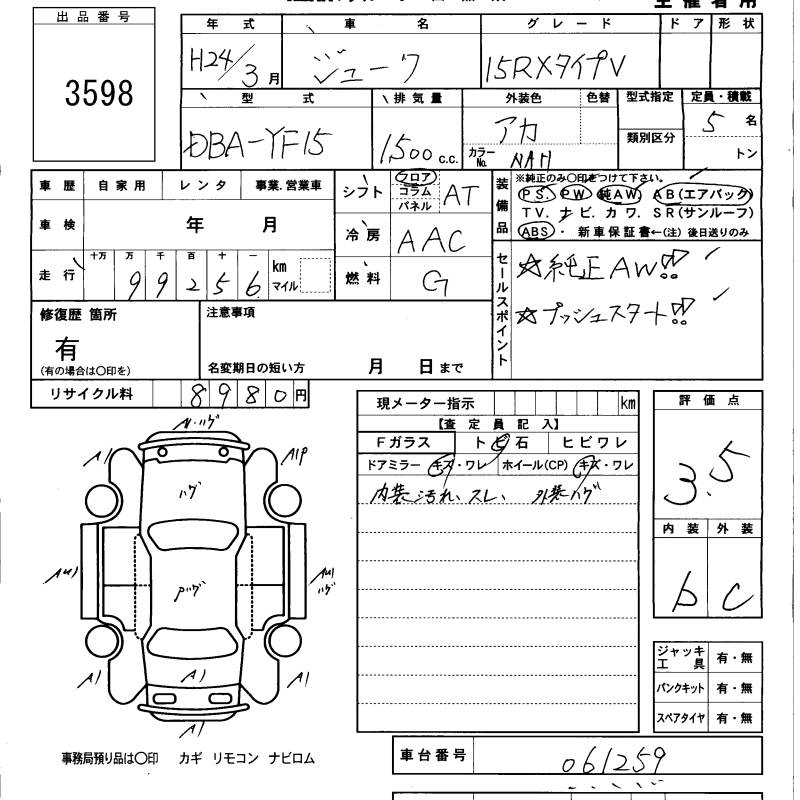 主催者用
出品番号
3598
年式 車名 グレード ドア 形状
H24/3月 ジューク 15RXタイプV
型式 排気量 外装色 色替 型式指定 定員・積載
DBA-YF15 1500c.c. アカ 類別区分 5名
カラーNo. NAH トン
車歴 自家用 レンタ 事業.営業車
車検 年 月
走行 十万 万 千 百 十 一
99256 km マイル
シフト フロア コラム パネル AT
冷房 AAC
燃料 G
装備品
※純正のみ〇印をつけて下さい。
PS. PW 純AW. AB(エアバック)
TV. ナビ. カワ. SR(サンルーフ)
ABS ・ 新車保証書←(注) 後日送りのみ
セールスポイント
☆純正AW!!
☆プッシュスタート!!
修復歴 箇所
有
(有の場合は〇印を)
注意事項
名変期日の短い方 月 日まで
リサイクル料 8980円
現メーター指示 km
【査定員記入】
Fガラス トビ石 ヒビワレ
ドアミラー キズ・ワレ ホイール(CP) キズ・ワレ
内装汚れ、スレ、 外装ハゲ
評価点
3.5
内装 外装
b c
ジャッキ工具 有・無
パンクキット 有・無
スペアタイヤ 有・無
ハゲ
A1
A1P
ハゲ
Pハゲ
ハゲ
A1
A1
A1
A1
事務局預り品は〇印 カギ リモコン ナビロム
車台番号 061259